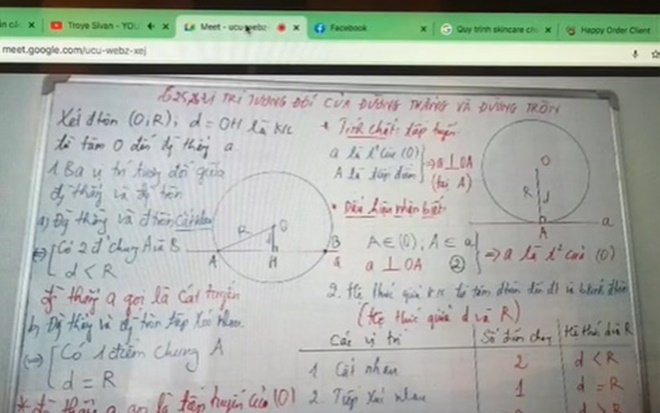 Troye Sivan - YOU
Meet - ucu-webz-
Facebook
Quy trình skincare ch
Happy Order Client
meet.google.com/ucu-webz-xej
VỊ TRÍ TƯƠNG ĐỐI CỦA ĐƯỜNG THẲNG VÀ ĐƯỜNG TRÒN
Xét đtròn (O;R); d = OH là k/c
từ tâm O đến đg thẳng a
1. Ba vị trí tương đối giữa
đg thẳng và đg tròn
a) Đg thẳng và đtròn cắt nhau
⇔ [ Có 2 đ' chung A và B
d < R
đg thẳng a gọi là cát tuyến
b) Đg thẳng và đg tròn tiếp xúc nhau
⇔ [ Có 1 điểm chung A
d = R
* đg thẳng a gọi là tiếp tuyến của (O)
R
O
A
H
B
a
* Tính chất tiếp tuyến
a là t² của (O)
A là tiếp điểm
⇒ a ⊥ OA
(tại A)
* Dấu hiệu nhận biết:
A ∈ (O); A ∈ a
a ⊥ OA
②
⇒ a là t² của (O)
O
R
A
a
2. Hệ thức giữa k/c từ tâm đtròn đến đt và b.kính đtròn
(Hệ thức giữa d và R)
Các vị trí
Số điểm chung
Hệ thức d và R
1 Cắt nhau
2
d < R
2. Tiếp xúc nhau
1
d = R